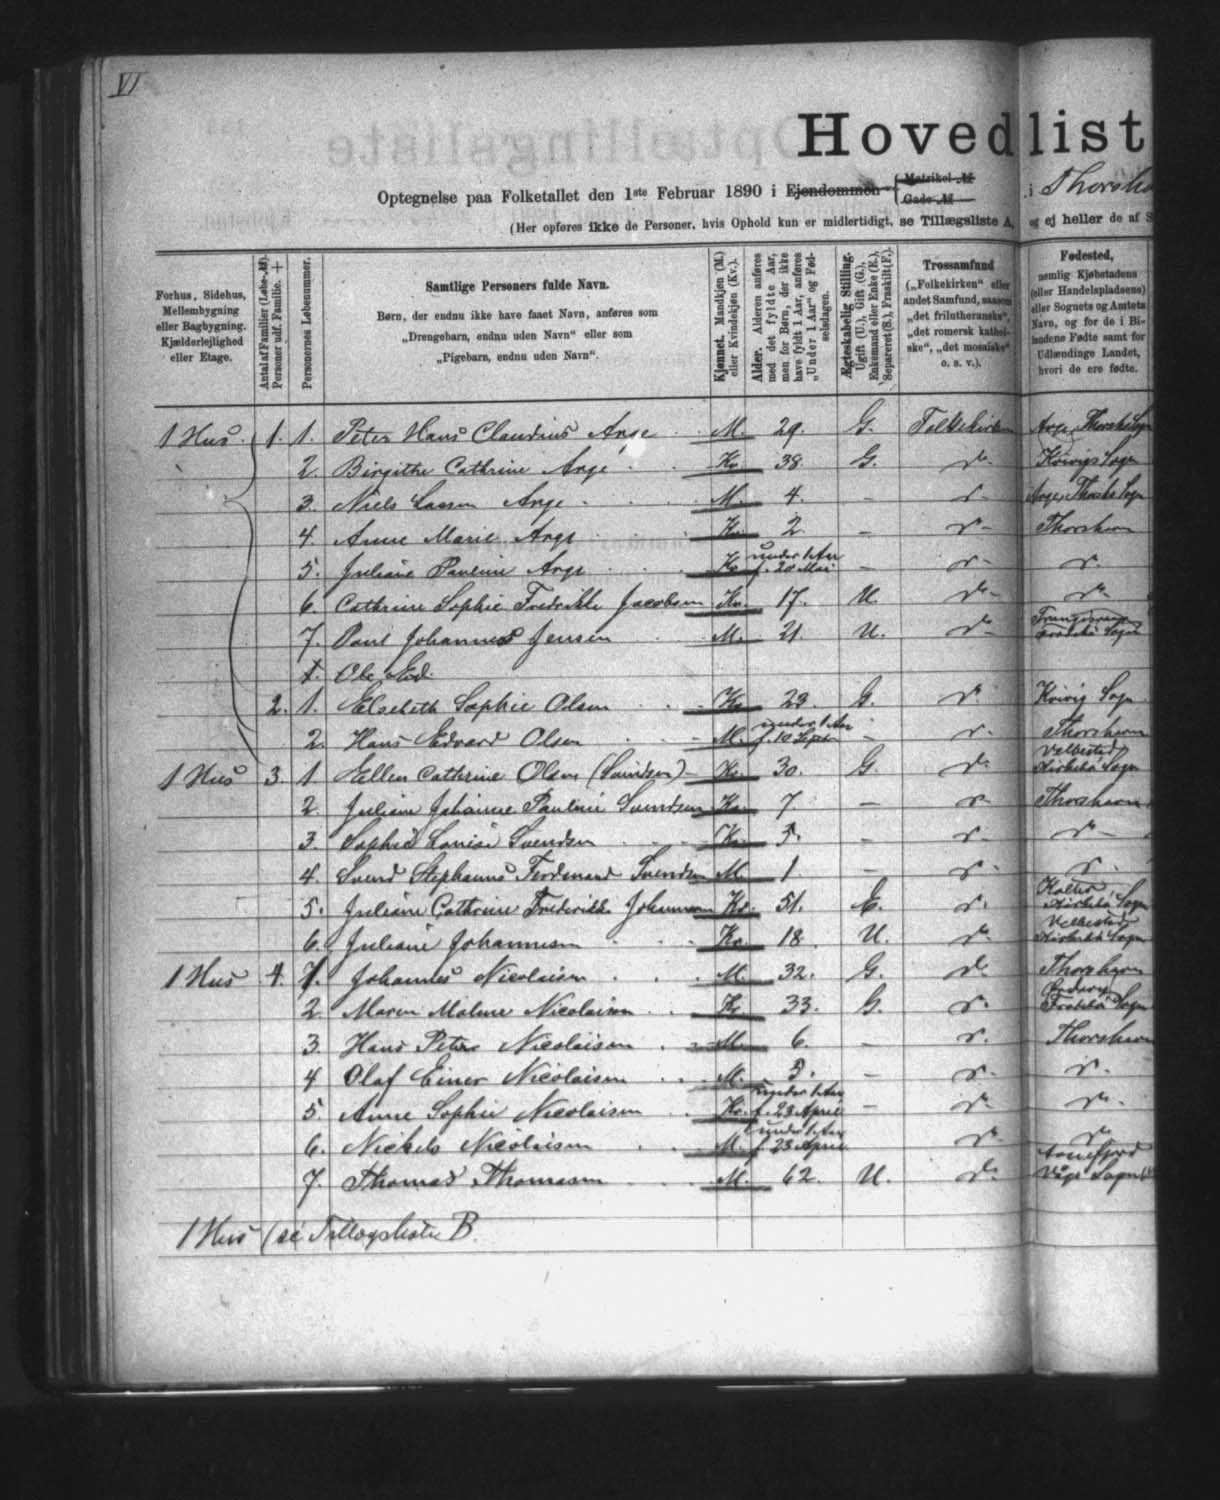 VI
Hovedlist
Optegnelse paa Folketallet den 1ste Februar 1890 i Ejendommen Matrikel-№ Gade-№ i Thorsha
(Her opføres ikke de Personer, hvis Ophold kun er midlertidigt, se Tillægsliste A, og ej heller de af S
Forhus, Sidehus, Mellembygning eller Bagbygning. Kjælderlejlighed eller Etage.
Antal af Familier (Løbe-№). Personer udf. Familie. +
Personernes Løbenummer.
Samtlige Personers fulde Navn.
Børn, der endnu ikke have faaet Navn, anføres som
„Drengebarn, endnu uden Navn“ eller som
„Pigebarn, endnu uden Navn“.
Kjønnet. Mandkjøn (M.) eller Kvindekjøn (Kv.).
Alder. Alderen anføres med det fyldte Aar, men for Børn, der ikke have fyldt 1 Aar, anføres „Under 1 Aar“ og Fødselsdagen.
Ægteskabelig Stilling. Ugift (U.), Gift (G.), Enkemand eller Enke (E.), Separeret (S.), Fraskilt (F.).
Trossamfund („Folkekirken“ eller andet Samfund, saasom „det frilutheranske“, „det romersk katholske“, „det mosaiske“ o. s. v.).
Fødested, nemlig Kjøbstadens (eller Handelspladsens) eller Sognets og Amtets Navn, og for de i Bilandene Fødte samt for Udlændinge Landet, hvori de ere fødte.
1 Hus. 1. 1. Peter Hans Claudius Arge M. 29. G. Folkekirken Arge, Thorsh. Sogn
2. Birgitte Cathrine Arge Kv. 38. G. do Kvivigs Sogn
3. Niels Arge M. 4. – do Arge, Thorsh. Sogn
4. Anne Marie Arge Kv. 2. – do Thorshavn
5. Juliane Pauline Arge Kv. under 1 Aar f. 20 Mai – do do
6. Cathrine Sophie Fredrikke Jacobsen Kv. 17. U. do do
7. Paul Johannes Jensen M. 21. U. do Sogn
1. Ole Ed.
2. 1. Elsebeth Sophie Olsen Kv. 23. G. do Kvivig Sogn
2. Hans Edvard Olsen M. under 1 Aar f. 10 Sept. – do Thorshavn
1 Hus 3. 1. Ellen Cathrine Olsen (Svendsen) Kv. 30. G. do Velbestad Kirkebø Sogn
2. Juliane Johanne Pauline Svendsen Kv. 7 – do Thorshavn
3. Sophie Louise Svendsen Kv. 5. – do do
4. Svend Stephanus Ferdinand Svendsen M. 1. – do do
5. Juliane Cathrine Frederikke Johannesen Kv. 51. E. do Koltur, Kirkebø Sogn
6. Juliane Johannesen Kv. 18. U. do Velbestad Kirkebø Sogn
1 Hus 4. 1. Johannes Nicolaisen M. 32. G. do Thorshavn
2. Maren Malene Nicolaisen Kv. 33. G. do Sogn
3. Hans Peter Nicolaisen M. 6. – do Thorshavn
4 Olaf Einer Nicolaisen M. 3. – do do
5. Anne Sophie Nicolaisen Kv. under 1 Aar f. 23 April – do do
6. Nickels Nicolaisen M. under 1 Aar f. 23 April do do
7. Thomas Thomasen M. 62. U. do Sogn
1 Hus (se Tillægsliste B.